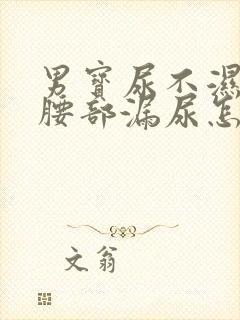 男寶尿不濕
腰部漏尿怎
文翁